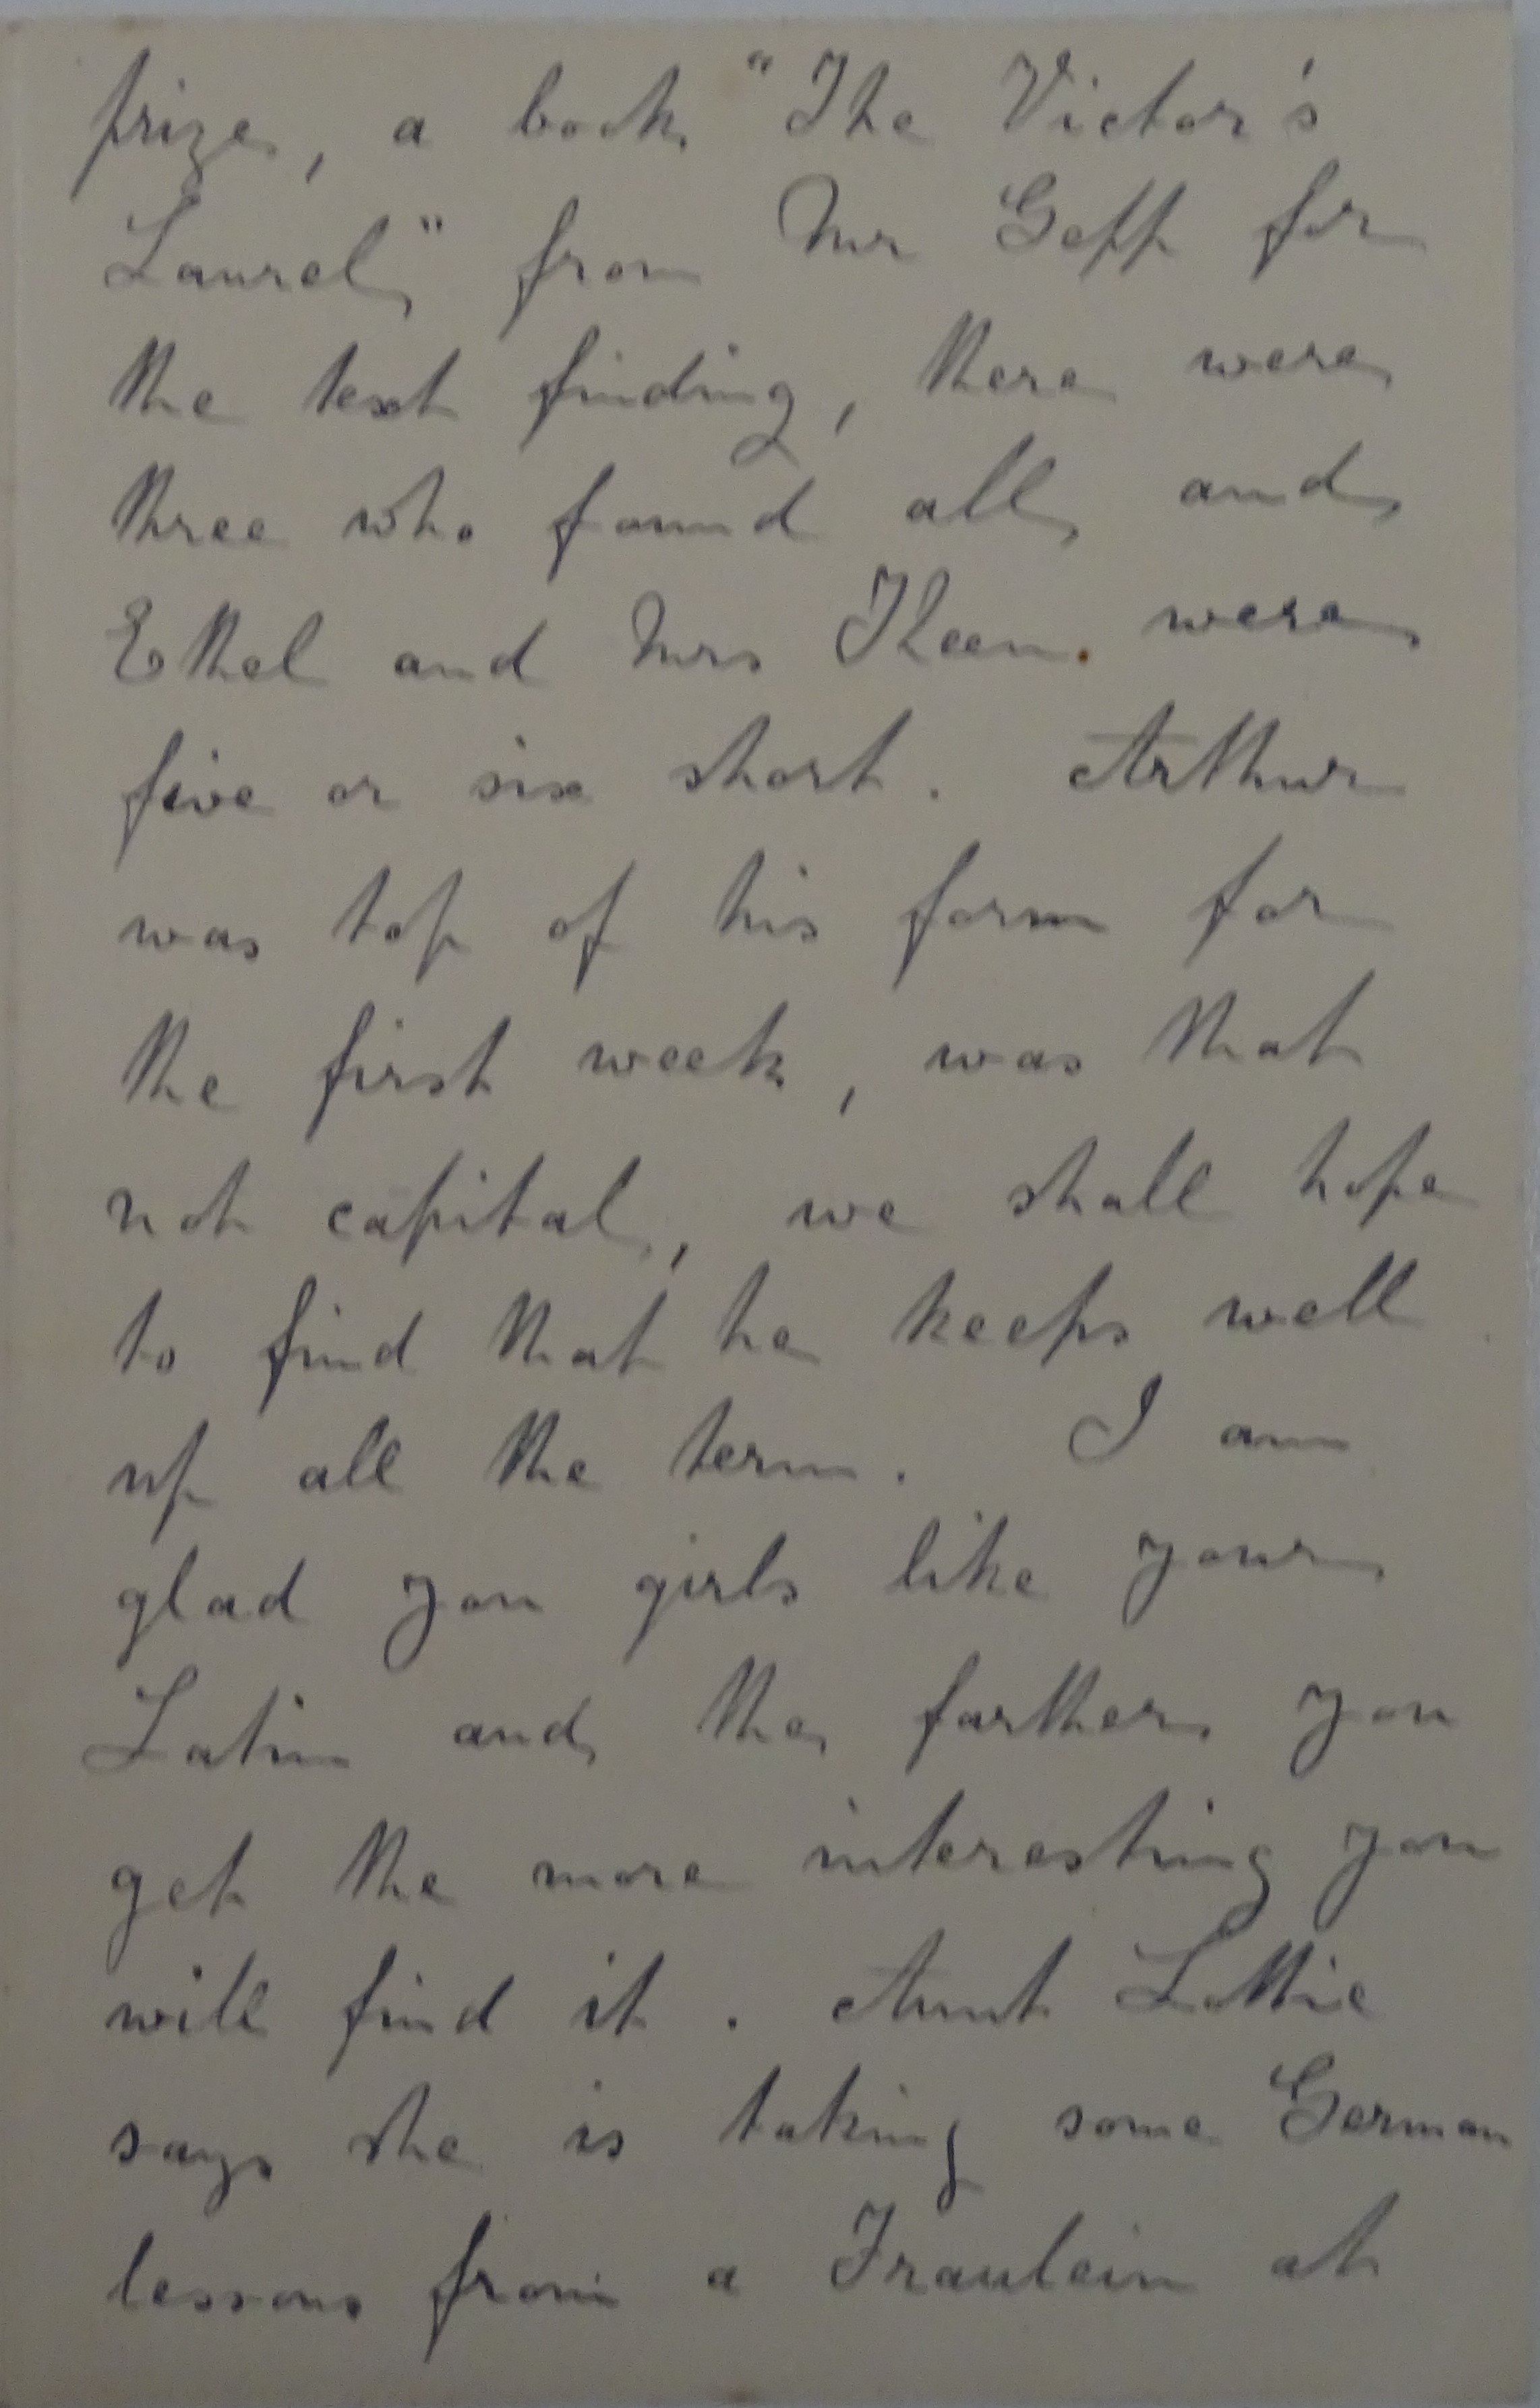 prize, a book "The Victor's
Laurel" from Mr Gepp for
the text finding, there were
three who found all and
Ethel and Mrs were
five or six short. Arthur
was top of his form for
the first week, was that
not capital, we shall hope
to find that he keeps well
up all the term. I am
glad you girls like your
Latin and the farther you
get the more interesting you
will find it. Aunt Lottie
says she is taking some German
lessons from a Fraulein at